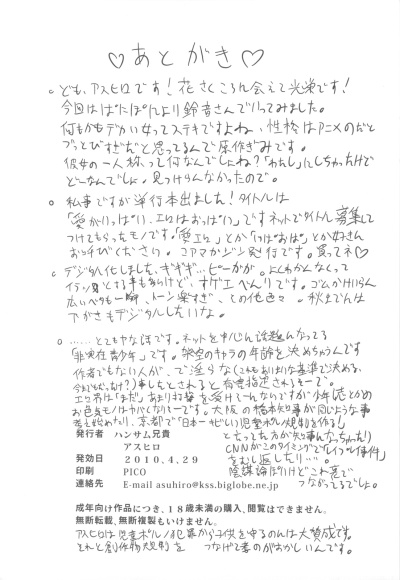 ♡あとがき♡
。ども、アスヒロです！花さくころん会えて光栄です！
今回はぱたぽたより鈴音さんでいってみました。
何もかもデカい女ってステキですよね、性格はアニメのだと
ブッとびすぎだと思ってるんで原作ぎみです。
彼女の一人称って何なんでしょね？「わたし」にしちゃったけど
どーなんでしょ。見つけらんなかったので。
。私事ですが単行本出ました！タイトルは
「愛がいっぱい、エロはおっぱい」ですネットでタイトル募集して
つけてもらったモノです。「愛エロ」とか「いぱおぱ」とか好きん
お呼びください。コアマガジン発行です。買ってネ♡
。デジタル化しました、ギギギ…ピーガガ。よくわかんなくって
イラッとする事も多いけど、スゲエべんりです。ゴムかけいらん
広いベタも一瞬、トーン楽すぎ、その他色々。秋までんは
下がきもデジタルしたいな。
。……とてもヤな話です。ネットを中心ん話題んなってる
「非実在青少年」です。架空のキャラの年齢を決めちゃうんです
作者でもない人が、で淫らな（これもあいまいな基準で決める、
事したとされると有害指定されるそーで。
エロ界は「まだ」あまり打撃を受けてーないですが少年誌とかの
お色気モノはヤバくなりそーです。大阪の橋本知事が同じような事
考え始めたり、京都で「日本一きびしい児童ポルノ規制を作る！」
と言ってた方が知事んなっちゃったり
CNNがこのタイミングで「レイプレイ事件」
をむし返したり…。
陰謀論ぽいけどこれ裏で
つながってるでしょ。
発行者　ハンサム兄貴
アスヒロ
発効日　2010,4,29
印刷　PICO
連絡先　E-mail asuhiro@kss.biglobe.ne.jp
成年向け作品につき、18歳未満の購入、閲覧はできません。
無断転載、無断複写もいけません。
アスヒロは児童ポルノ犯罪から子供を守るのは大賛成です。
それと創作物規制を つなげて考のがおかしいんです。